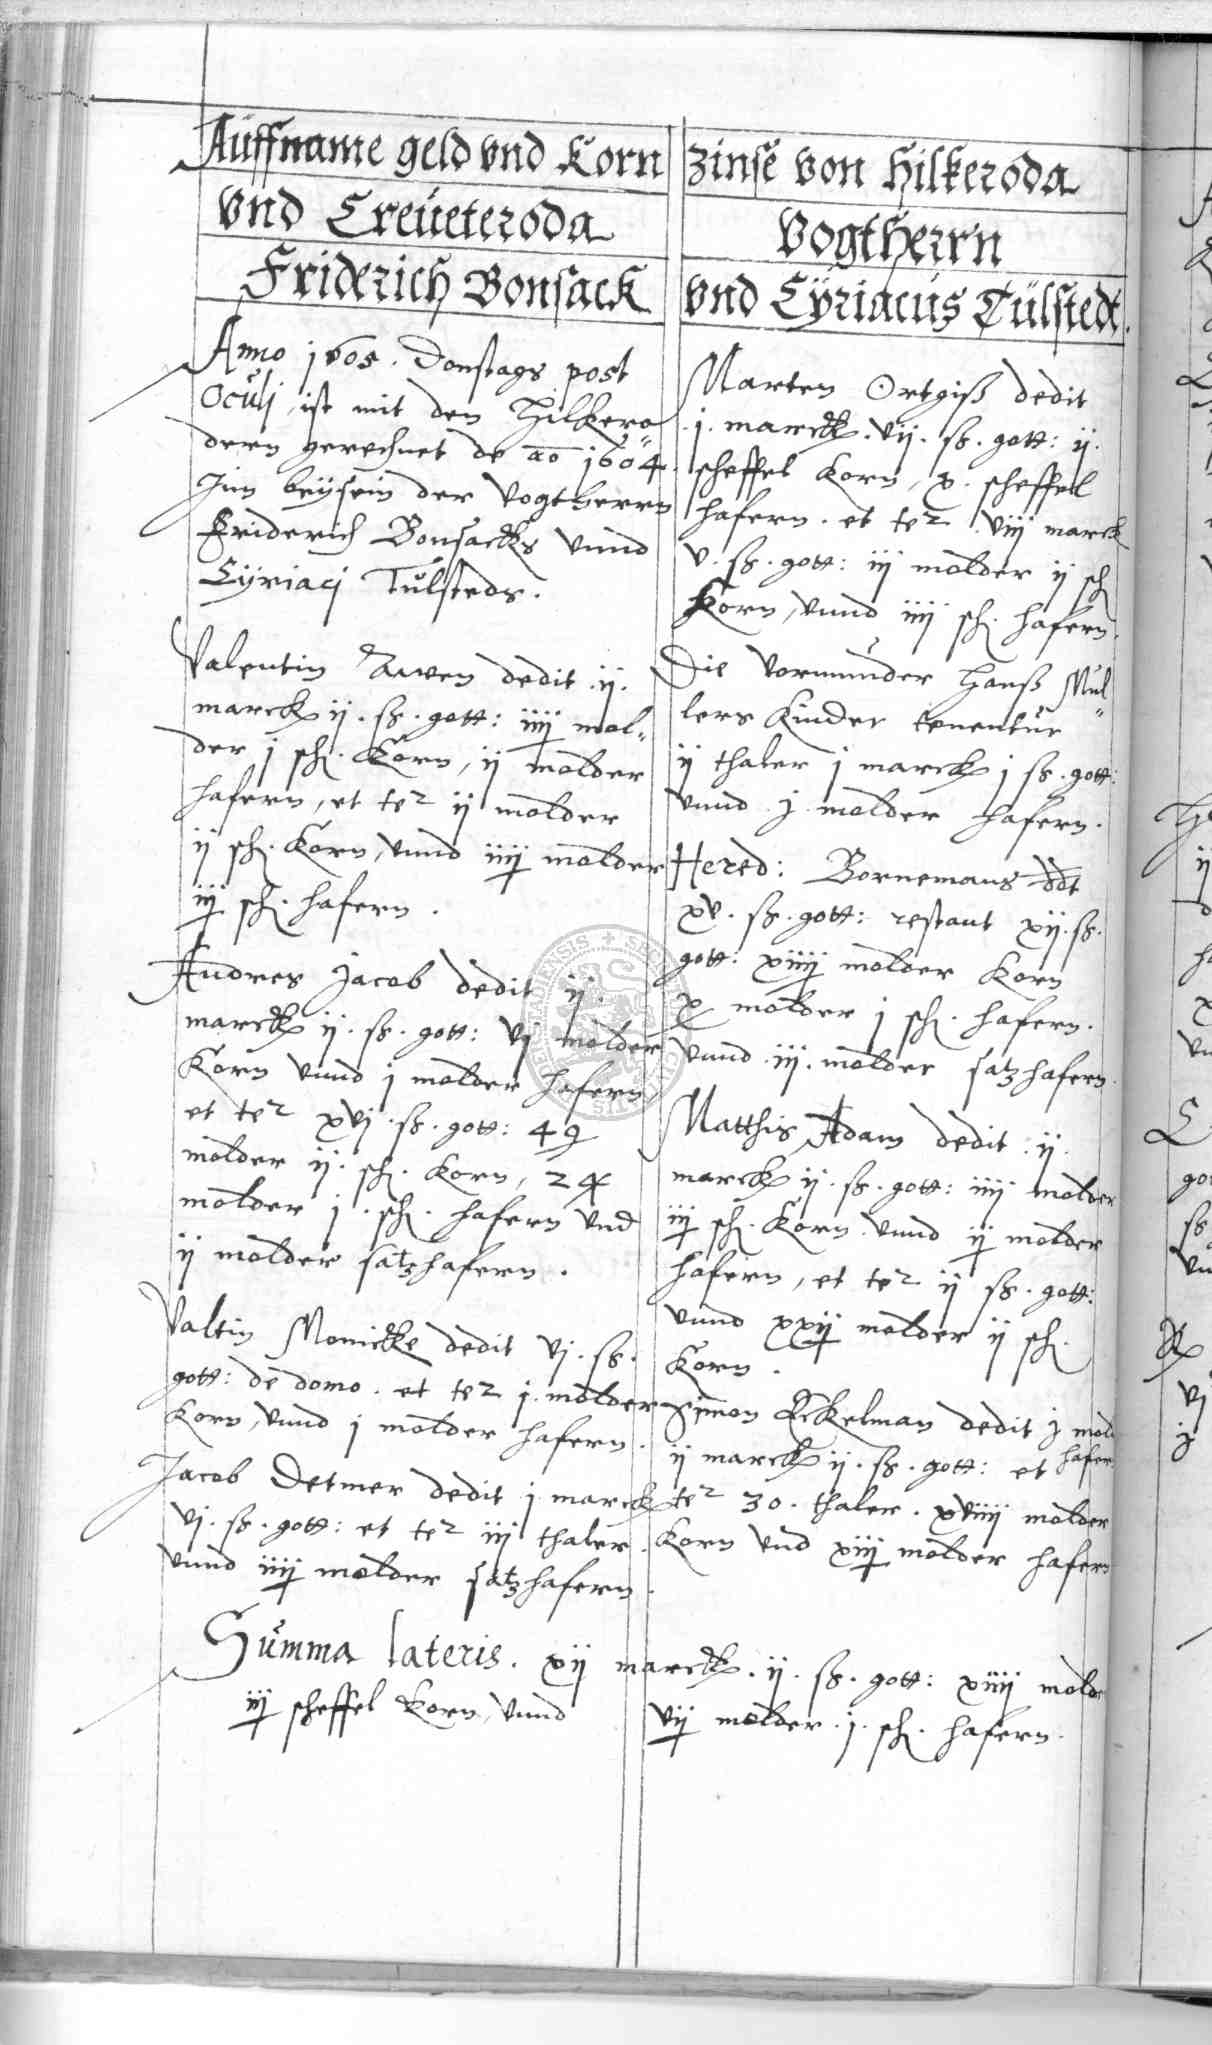 Auffname geld vnd Korn zinse von Hilkeroda
vnd Creueteroda Vogtherrn
Friderich Bonsack vnd Cÿriacus Tülstedt.
Anno 1605. Donstags post
Oculj ist mit den Hilkero
dern gerechnet de ao 1604.
Jnn beÿsein der Vogtherrn
Friderich Bonsacks vnnd
Cÿriacj Tulsteds.
Valentin Awen dedit ij.
marck ij. ſß. gott: iiij mol„
der j sch. Korn, ij molder
hafern, et ter ij molder
ij sch. Korn, vnnd iiij molder
iij sch. hafern.
Andres Jacob dedit ij.
marck ij. ſß. gott: vj molder
Korn vnnd j molder hafern,
et ter xvj. ſß. gott: 49
molder ij. sch. Korn, 24
molder j. sch. hafern vnd
ij molder satzhafern.
Valtin Monicke dedit vj. ſß.
gott: de domo. et ter j. molder
Korn, vnnd j molder hafern.
Jacob Detmer dedit j marck
vj. ſß. gott: et ter iij thaler.
vnnd iiij molder satzhafern.
Marten Ortgiß dedit
j. marck. vij. ſß. gott: ij.
scheffel Korn, x. scheffel
hafern. et ter viij marck
v. ſß. gott: iij molder ij sch
Korn, vnnd iiij sch. hafern.
Die Vormunder Hanß Mul„
lers Kinder tenentur
ij thaler j marck j ſß. gott:
vnnd j. molder hafern.
Hered: Bornemans ddt
xv. ſß. gott: restant xij. ſß.
gott: xiiij molder Korn
x molder j sch. hafern.
vnnd iij. molder satzhafern.
Matthis Adam dedit ij.
marck ij. ſß. gott: iiij molder
iij sch. Korn vnnd ij molder
hafern, et ter ij ſß. gott:
vnnd xxij molder ij sch.
Korn.
Simon Eckelman dedit j mold
ij marck ij. ſß. gott: et hafer
ter 30. thaler. xviiij molder
Korn vnd xiij molder hafern
Summa lateris. xij marck. ij. ſß. gott: xiiij molde
iij scheffel Korn, vnnd vij molder. j. sch. hafern.